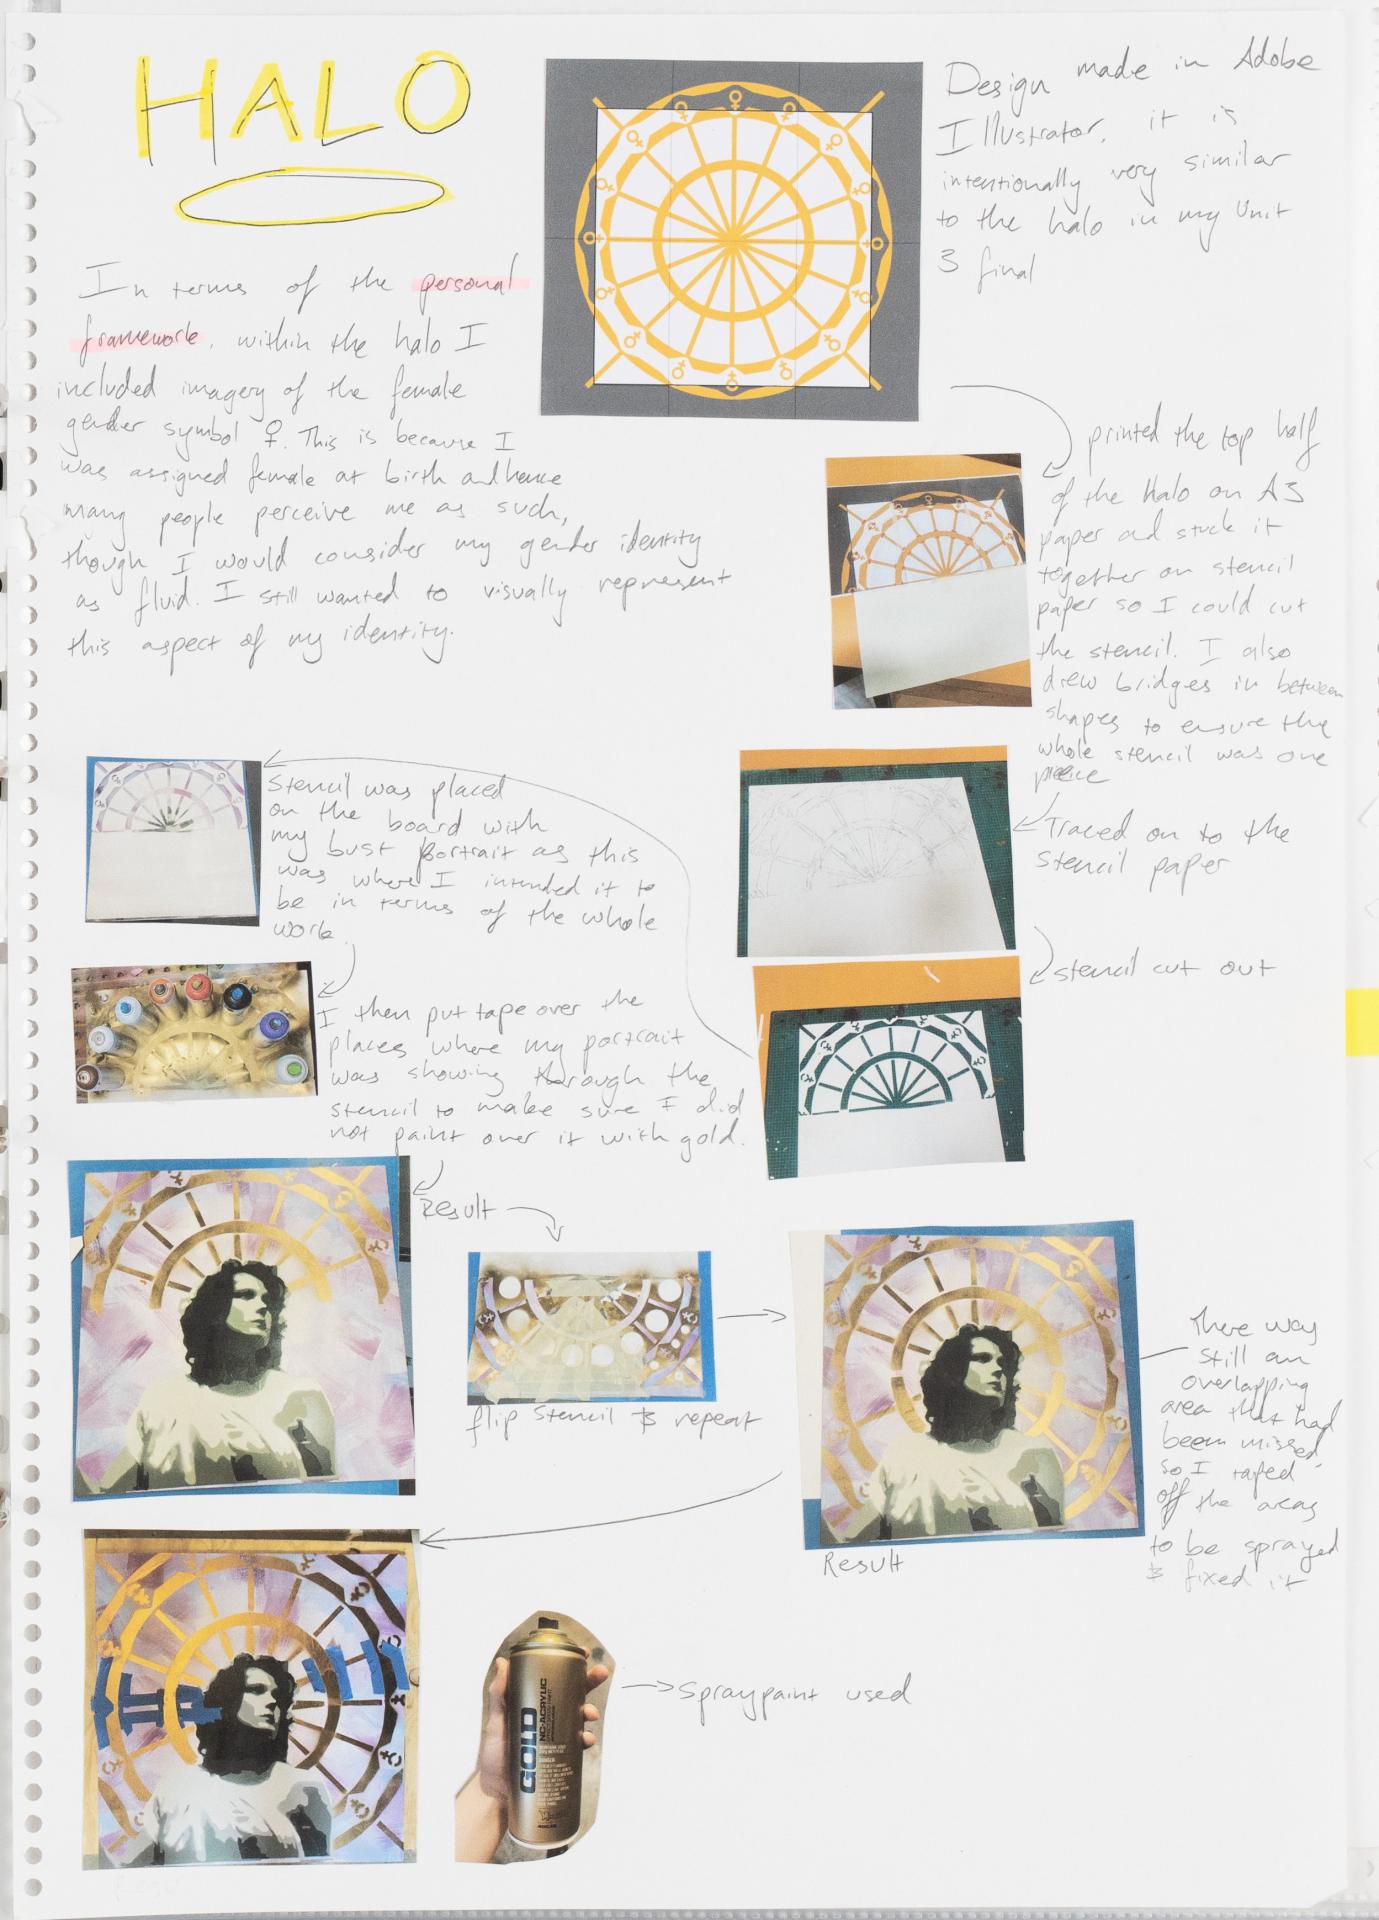 HALO
Design made in Adobe
Illustrator, it is
intentionally very similar
to the halo in my Unit
3 final
In terms of the personal
framework, within the halo I
included imagery of the female
gender symbol ♀. This is because I
was assigned female at birth and hence
many people perceive me as such,
though I would consider my gender identity
as fluid. I still wanted to visually represent
this aspect of my identity.
printed the top half
of the Halo on A3
paper and stuck it
together on stencil
paper so I could cut
the stencil. I also
drew bridges in between
shapes to ensure the
whole stencil was one
piece
Traced on to the
stencil paper
stencil cut out
Stencil was placed
on the board with
my bust portrait as this
was where I intended it to
be in terms of the whole
work.
I then put tape over the
places where my portrait
was showing through the
stencil to make sure I did
not paint over it with gold.
Result
flip stencil & repeat
Result
There was
still an
overlapping
area that had
been missed,
so I taped
off the areas
to be sprayed
& fixed it
GOLD
NC-ACRYLIC
Spraypaint used